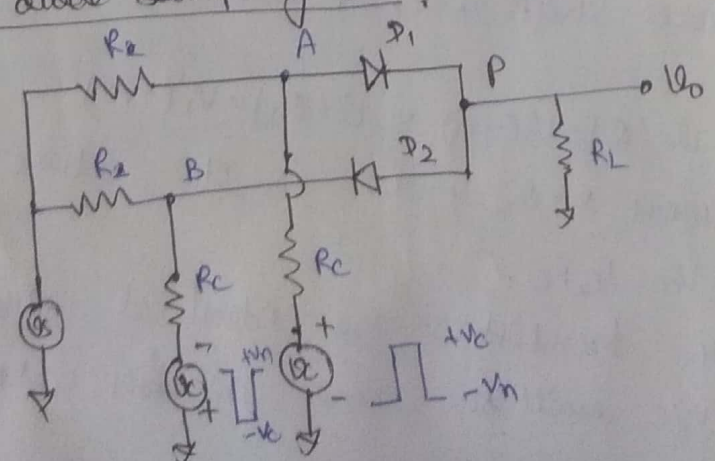 R2 A D1 P Vo
R2 B D2 RL
Rc Rc
Vs - +Vn + +Vc
Vc + -Vc Vc - -Vn